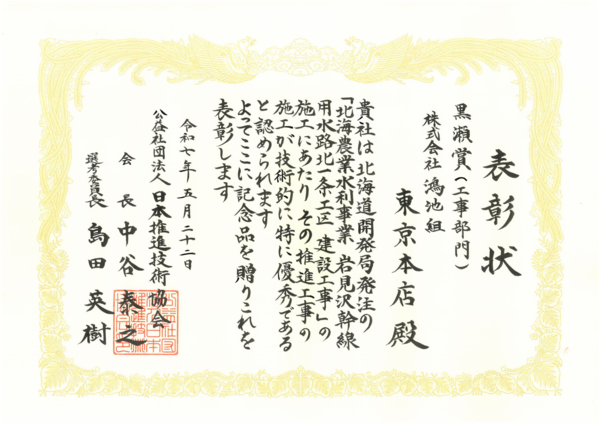 表彰状
黒瀬賞(工事部門)
株式会社 鴻池組
東京本店 殿
貴社は 北海道開発局発注の
「北海農業水利事業 岩見沢幹線
用水路北一条工区 建設工事」の
施工にあたり その推進工事の
施工が技術的に特に優秀である
と認められます
よってここに記念品を贈りこれを
表彰します
令和七年五月二十二日
公益社団法人 日本推進技術協会
会長 中谷泰之
選考委員長 島田英樹